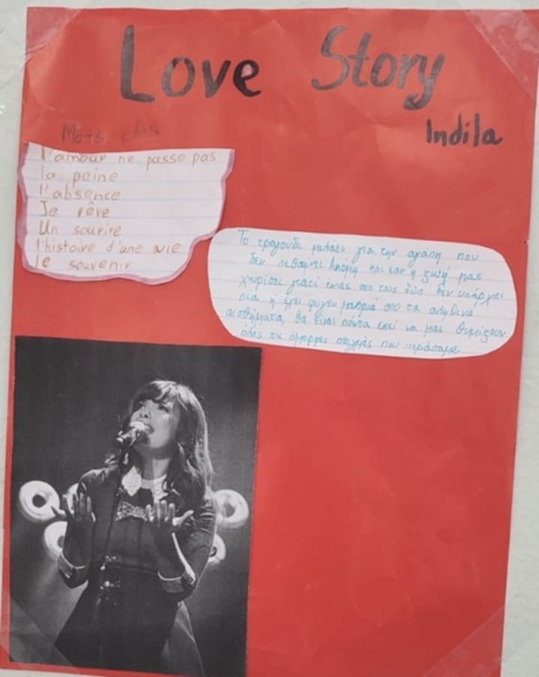 Love Story
Indila
Mots clés
l'amour ne passe pas
la peine
l'absence
Je rêve
Un sourire
l'histoire d'une vie
le souvenir
Το τραγούδι μιλάει για την αγάπη που
δεν πεθαίνει Ακόμη και εαν η ζωή μας
χωρίσει γιατί ένας από τους δύο δεν υπάρχει
πια ή έχει φύγει μακριά από τα
αισθήματα, θα είναι πάντα εκεί να μας θυμίζουν
όλες τις όμορφες στιγμές που περάσαμε